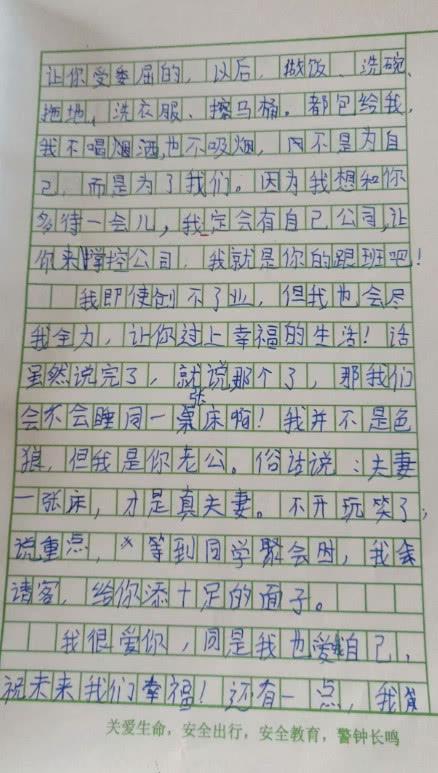 让你受委屈的，以后，做饭、洗碗、
拖地、洗衣服、擦马桶。都包给我，
我不喝烟酒，也不吸烟，因不是为自
己，而是为了我们。因为我想和你
多待一会儿，我定会有自己公司，让
你来撑控公司，我就是你的跟班吧！
我即使创不了业，但我也会尽
我全力，让你过上幸福的生活！话
虽然说完了，就说那个了，那我们
会不会睡同一张床啊！我并不是色
狼，但我是你老公。俗话说：夫妻
一张床，才是真夫妻。不开玩笑了，
说重点，等到同学聚会时，我会
请客，给你添十足的面子。
我很爱你，同是我也爱自己，
祝未来我们幸福！还有一点，我
关爱生命，安全出行，安全教育，警钟长鸣